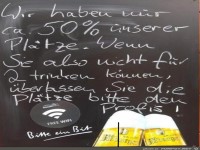 Wir haben nur
ca. 50% unserer
Plätze. Wenn
Sie also nicht für
2 trinken können,
überlassen Sie die
Plätze bitte den
Profis!
FREE WIFI
Bitte ein Bit